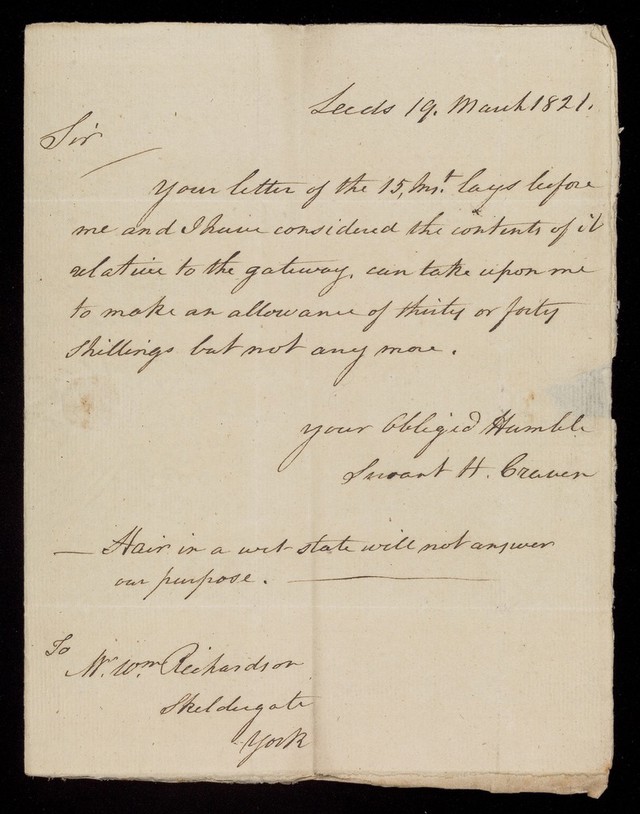 Leeds 19. March 1821.
Sir
Your letter of the 15, Inst. lays before
me and I have considered the contents of it
relative to the gateway, can take upon me
to make an allowance of thirty or forty
shillings but not any more.
your Obliged Humble
Servant H. Craven
— Hair in a wet state will not answer
our purpose. —
To
Mr. Wm Richardson
Skeldergate
York